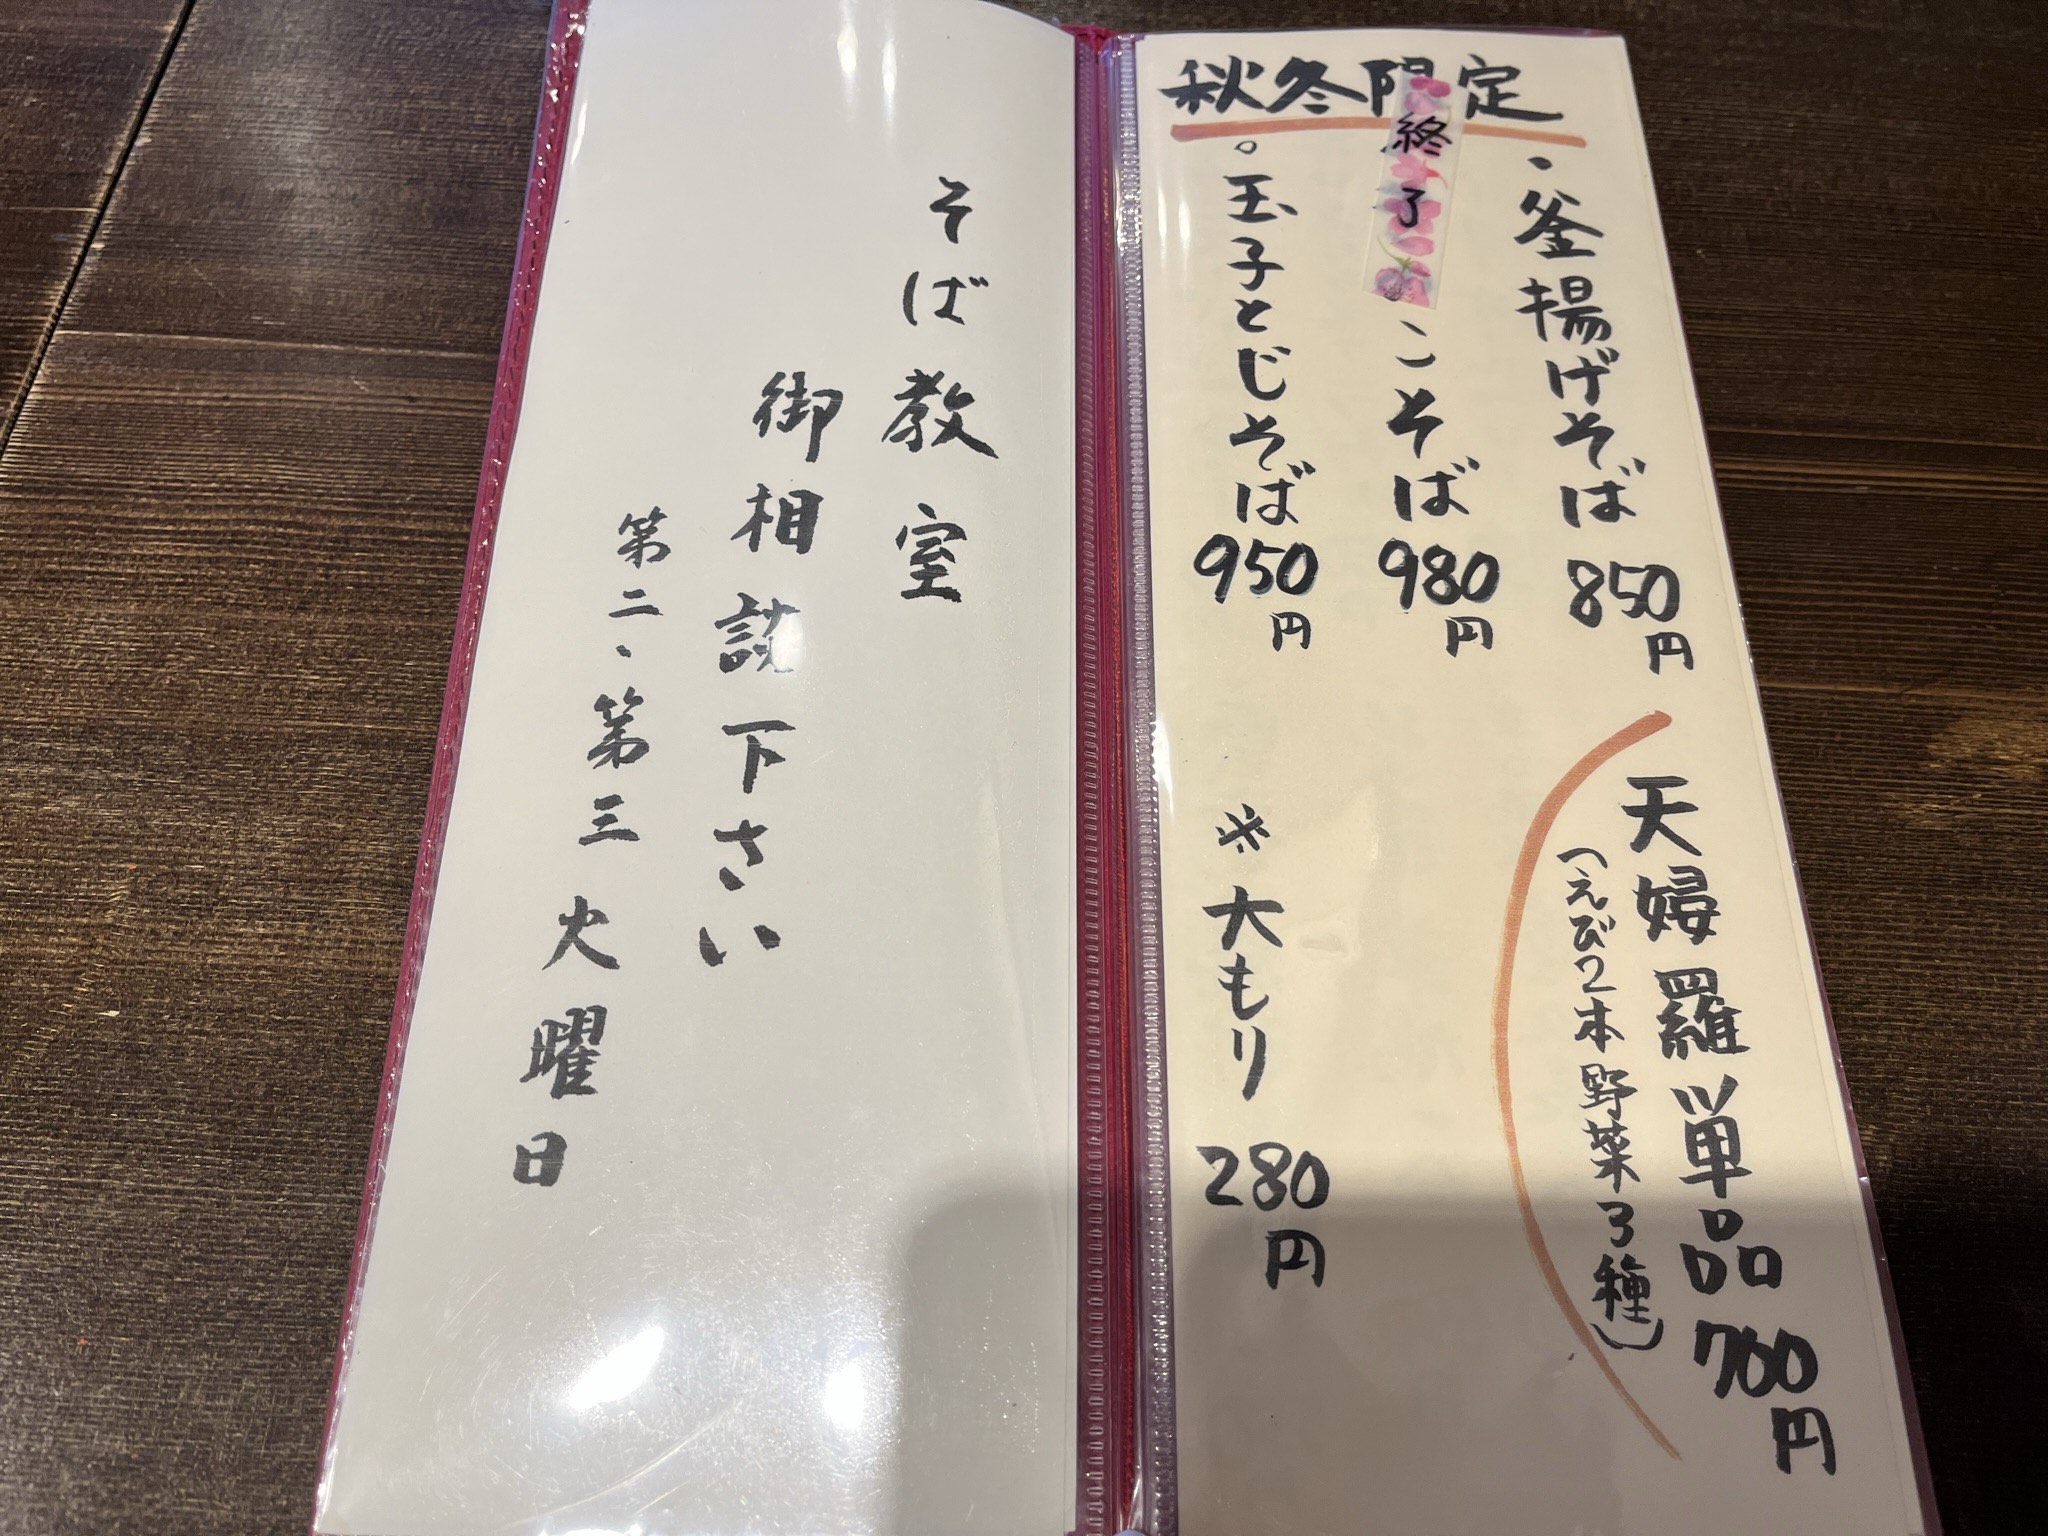 秋冬限定
・釜揚げそば 850円
終了
こそば 980円
。玉子とじそば 950円
天婦羅単品 760円
(えび2本野菜3種)
※大もり 280円
そば教室
御相談下さい
第二、第三火曜日